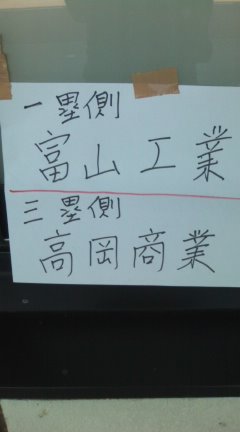 一塁側
富山工業
三塁側
高岡商業